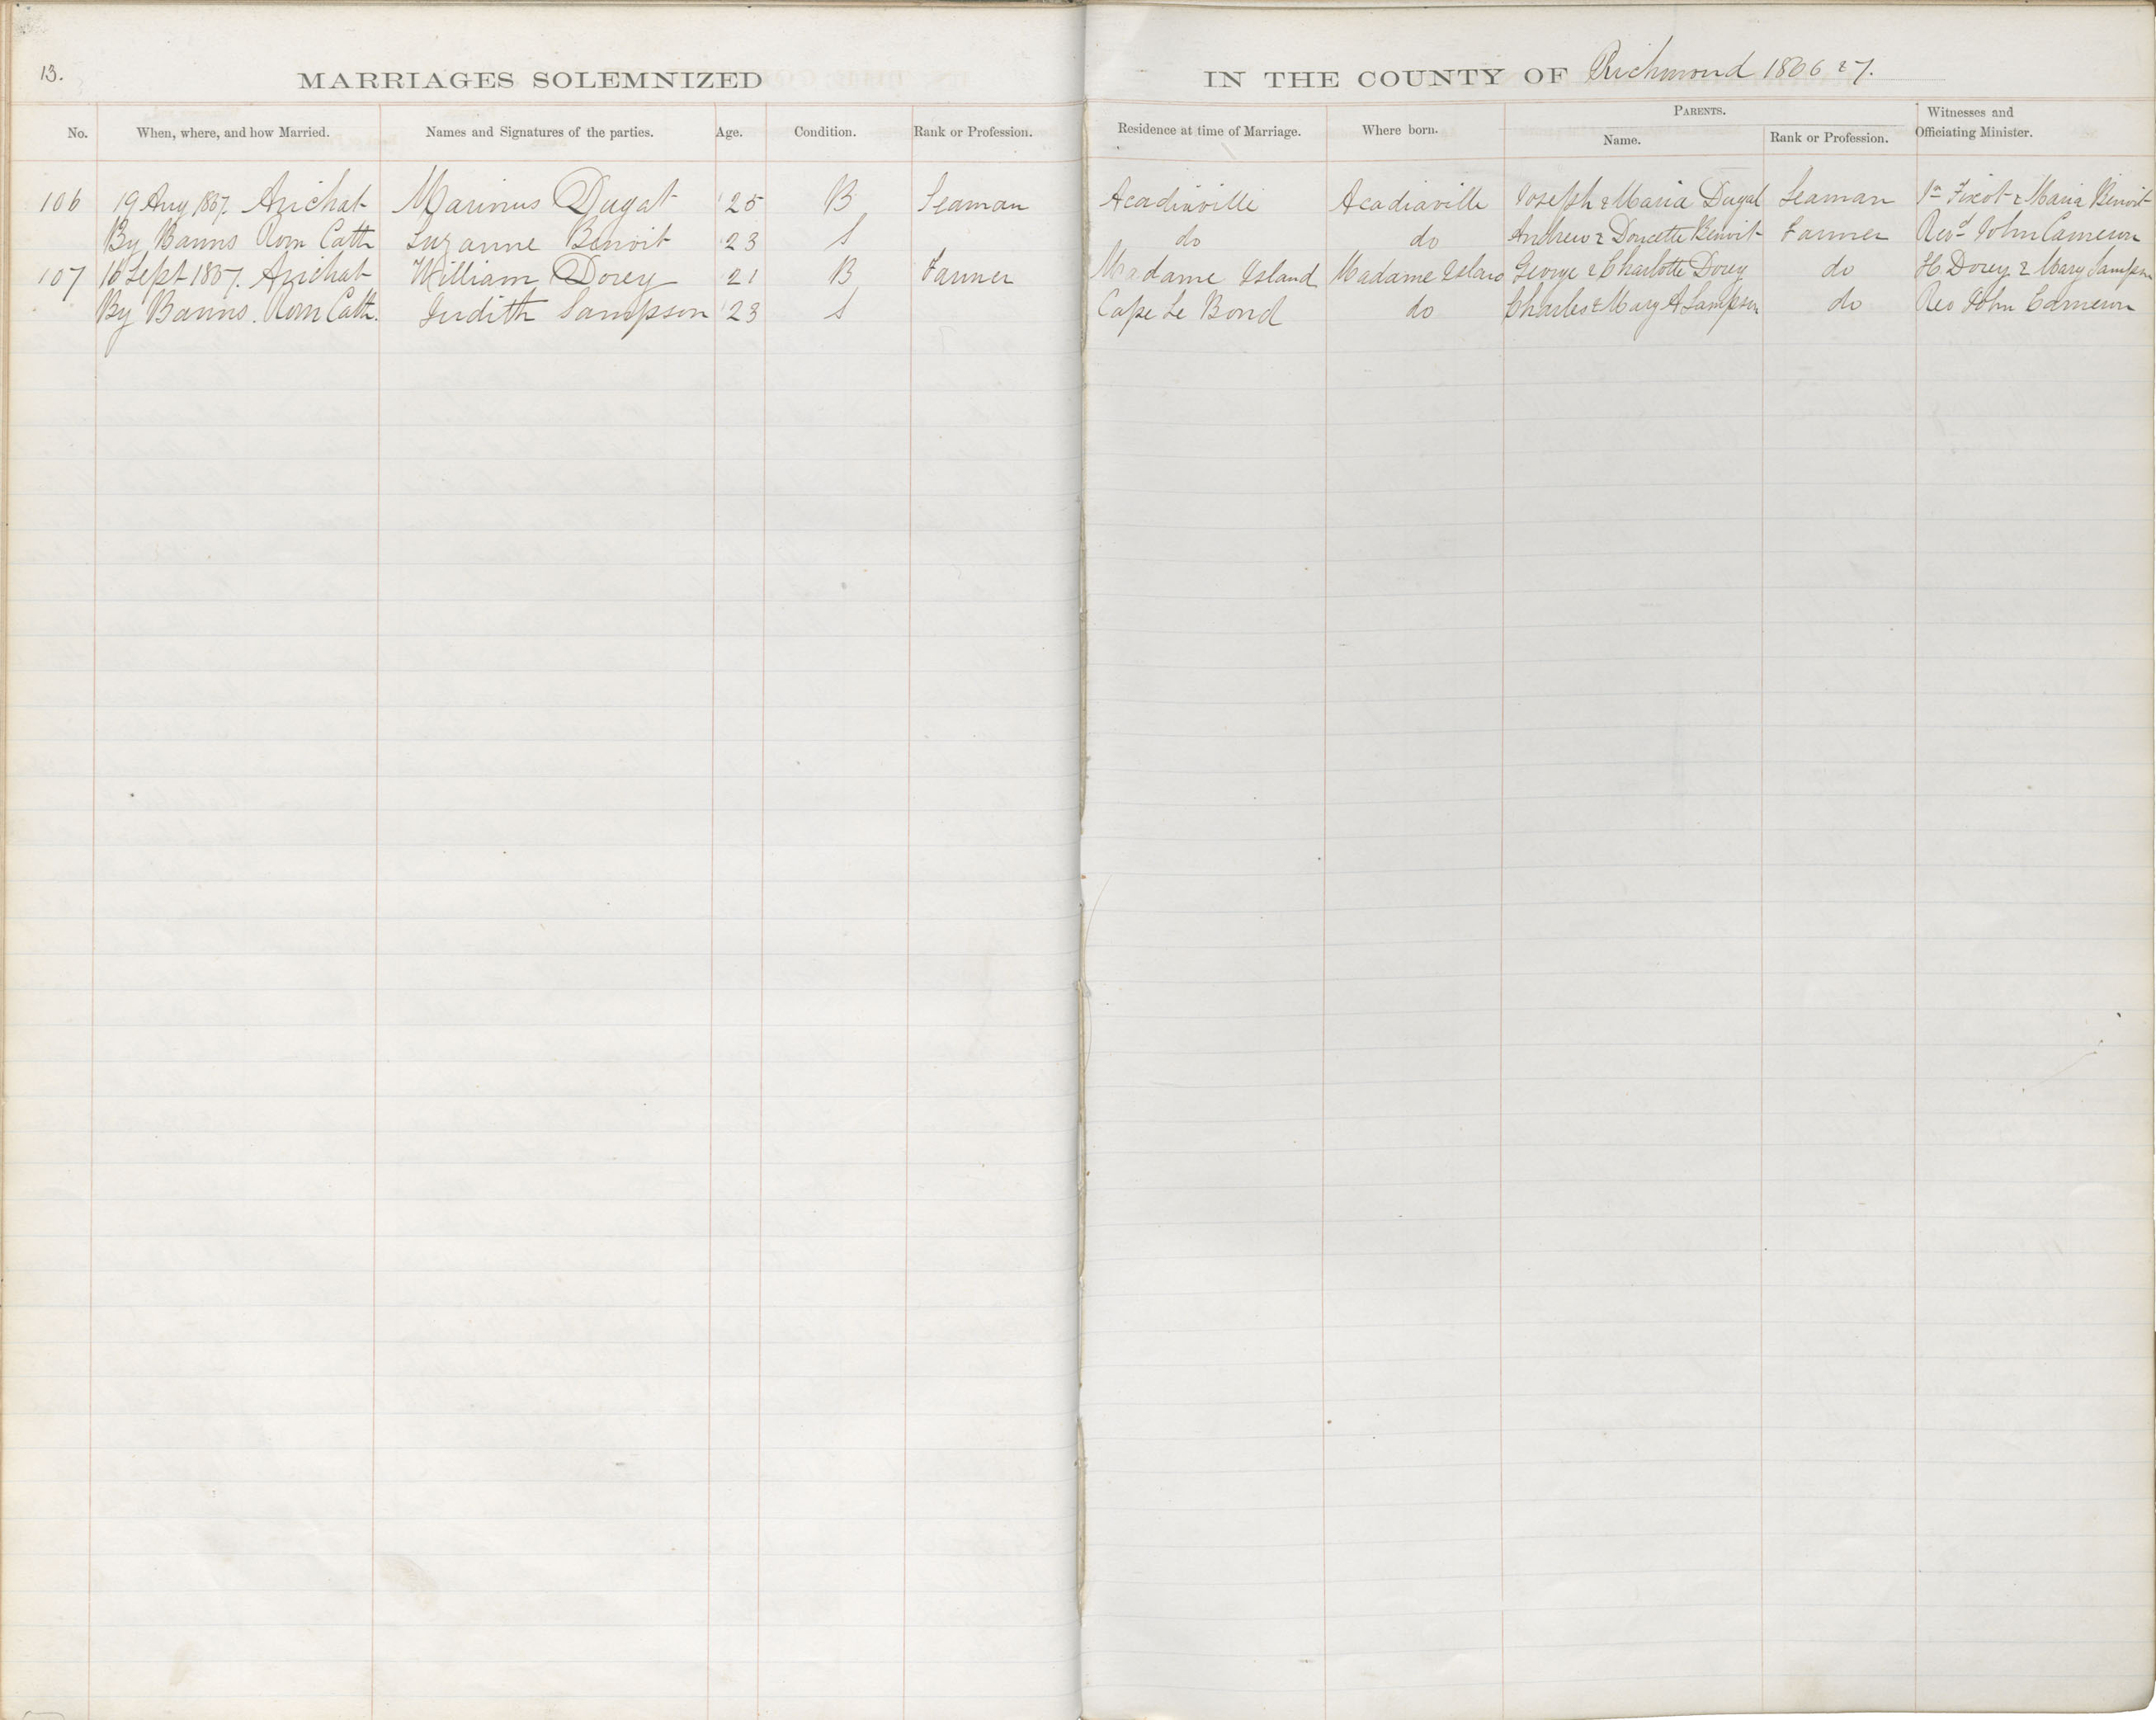 13.
MARRIAGES SOLEMNIZED IN THE COUNTY OF Richmond 1866 & 7.
No. When, where, and how Married. Names and Signatures of the parties. Age. Condition. Rank or Profession. Residence at time of Marriage. Where born. PARENTS. Name. Rank or Profession. Witnesses and Officiating Minister.
106 19 Aug 1867. Arichat Marinus Dugat 25 B Seaman Acadiaville Acadiaville Joseph & Maria Dugat Seaman Fixot & Maria Benoit
By Banns Rom Cath Suzanne Benoit 23 S do do Andrew & Doucette Benoit Farmer Revd John Cameron
107 16 Sept 1867. Arichat William Dorey 21 B Farmer Madame Island Madame Island George & Charlotte Dorey do H Dorey & Mary Sampson
By Banns. Rom Cath. Judith Sampson 23 S Cape Le Bond do Charles & Mary A Sampson do Rev John Cameron